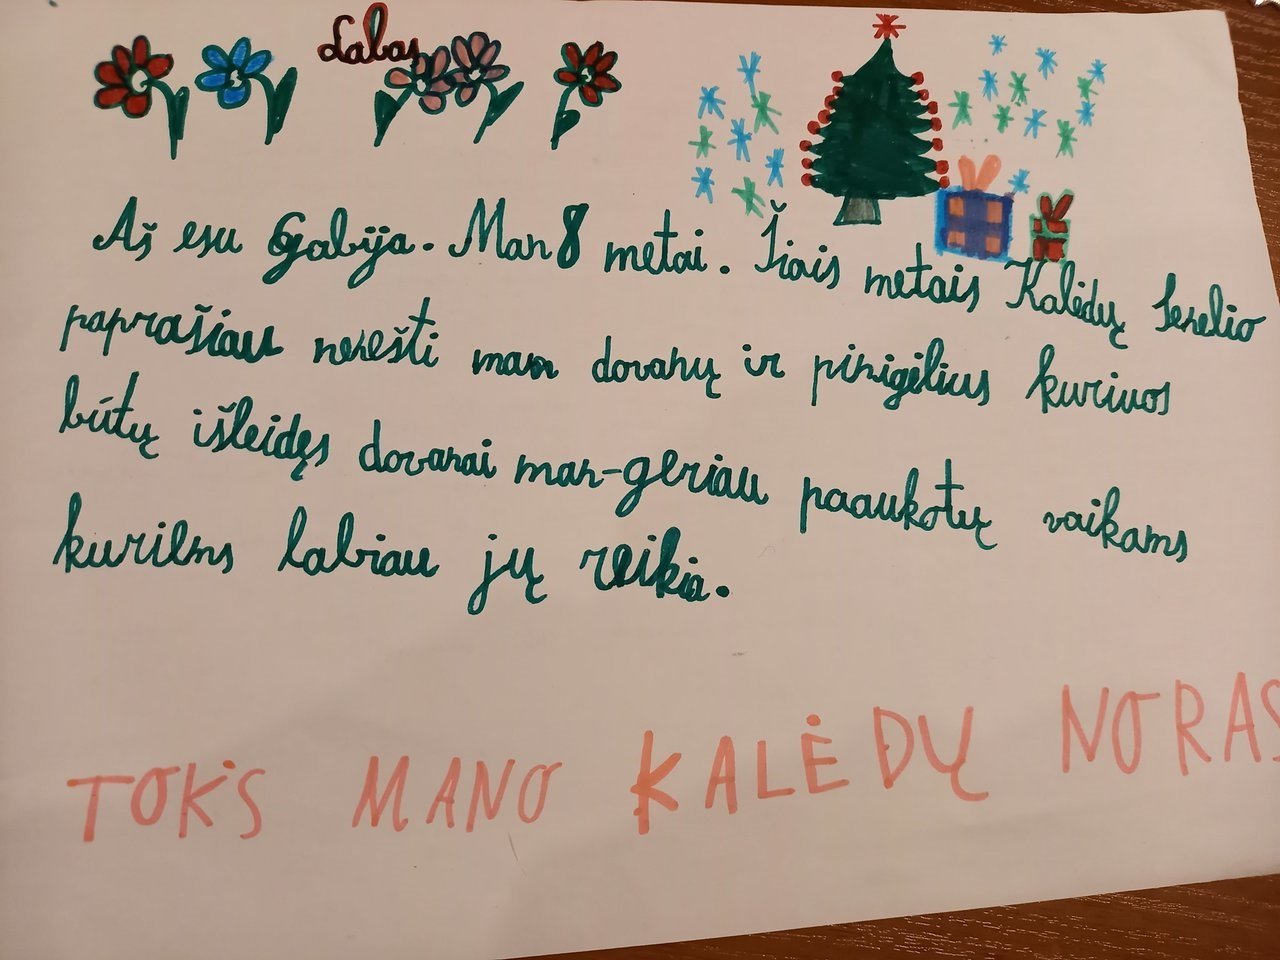 Labas
Aš esu Gabija. Man 8 metai. Šiais metais Kalėdų Senelio
paprašiau nenešti man dovanų ir pinigėlius kuriuos
būtų išleidęs dovanai man-geriau paaukotų vaikams
kuriems labiau jų reikia.
TOKS MANO KALĖDŲ NORAS